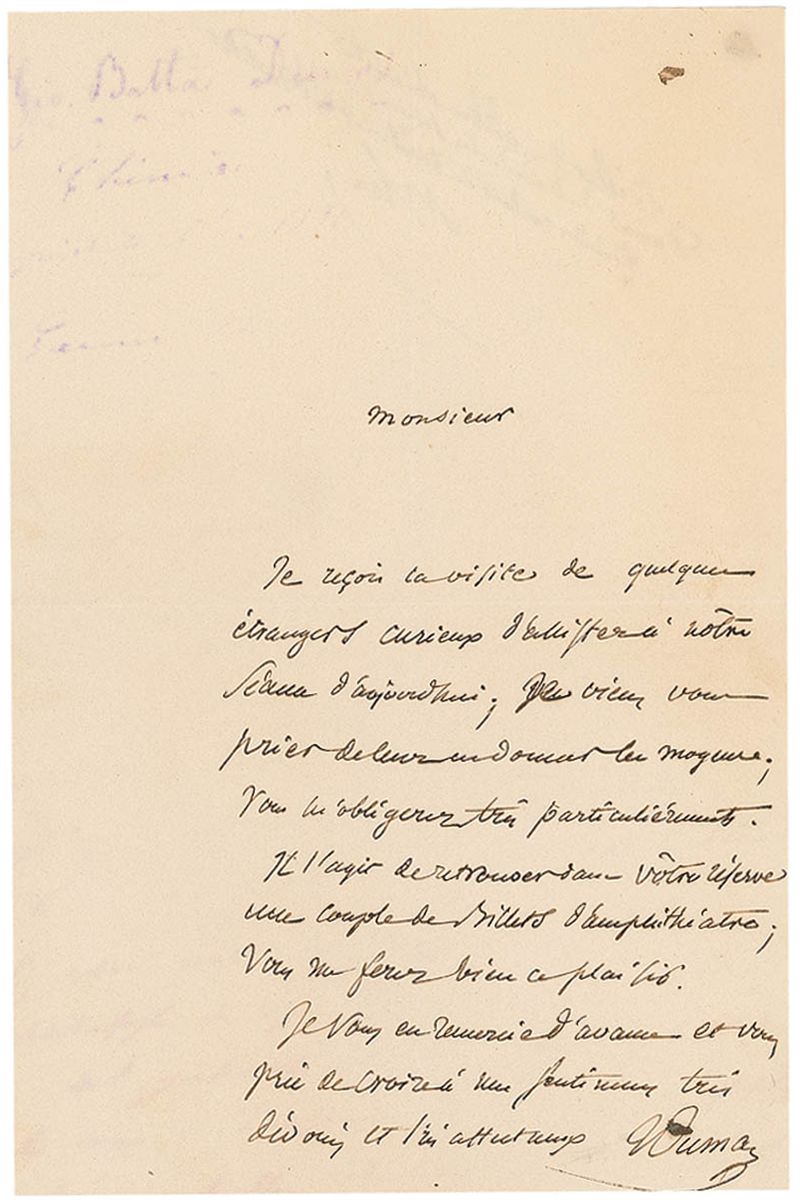 Monsieur
Je reçois la visite de quelques
étrangers curieux d'assister à nôtre
séance d'aujourdhui; Je viens vous
prier de leur en donner les moyens;
Vous m'obligerez très particulièrement.
Il s'agit de retrouver dans vôtre réserve
une couple de Billets d'amphithéatre;
Vous me ferez bien ce plaisir.
Je Vous en remercie d'avance et vous
prie de croire à mes sentimens très
dévoués et très affectueux Dumas